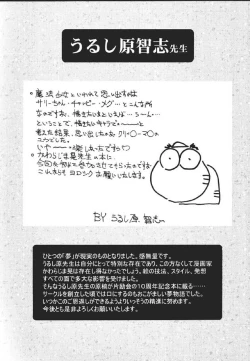 うるし原智志先生
◎魔法少女といわれて思い出すのは
サリーちゃん・チャッピー・メグ…とこんな所
なのですが、描きたいまといえば…うーん…
ということで、描きたいキャラだ〜〜と
考えた結果、思い出したのが、クリィーマ〇の
ユウでした。
いや〜〜楽しかったです♡
◎かわらじま晃先生の本に
今回も初めて参加させてもらったのですが
こんからも ヨロシクお願い致します。
BY うるし原 智志
ひとつの「夢」が現実のものとなりました。感無量です。
うるし原先生は自分にとって特別な存在であり、この方なくして漫画家
かわらじま晃は存在し得なかったでしょう。絵の技法、スタイル、発想
すべての面で多大な影響を受けました。
そんなうるし原先生の原稿が片励会の10周年記念本に載る……
サークルを創立した頃では口にするのもおこがましい夢物語でした。
いつかこのご恩返しができるよういっそうの精進に努めます。
今後とも是非よろしくお願いいたします。